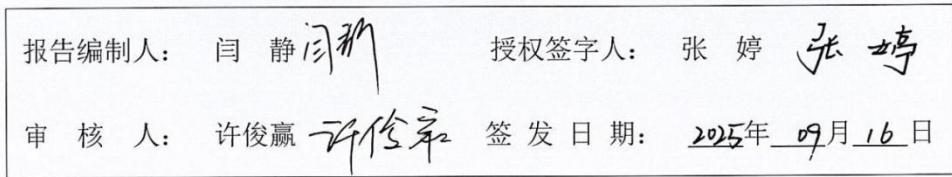 报告编制人： 闫 静 闫静 授权签字人： 张 婷 张婷
审 核 人： 许俊赢 许俊赢 签 发 日 期： 2025年 09月 16 日